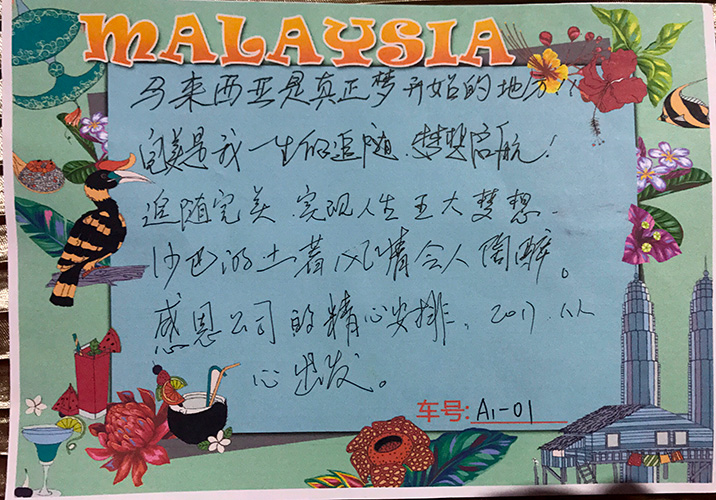 MALAYSIA
马来西亚是真正梦开始的地方!
完美是我一生的追随、梦想启航!
追随完美 实现人生五大梦想.
沙巴的土著风情令人陶醉。
感恩公司的精心安排,2017.从
心出发。
车号: A1-01